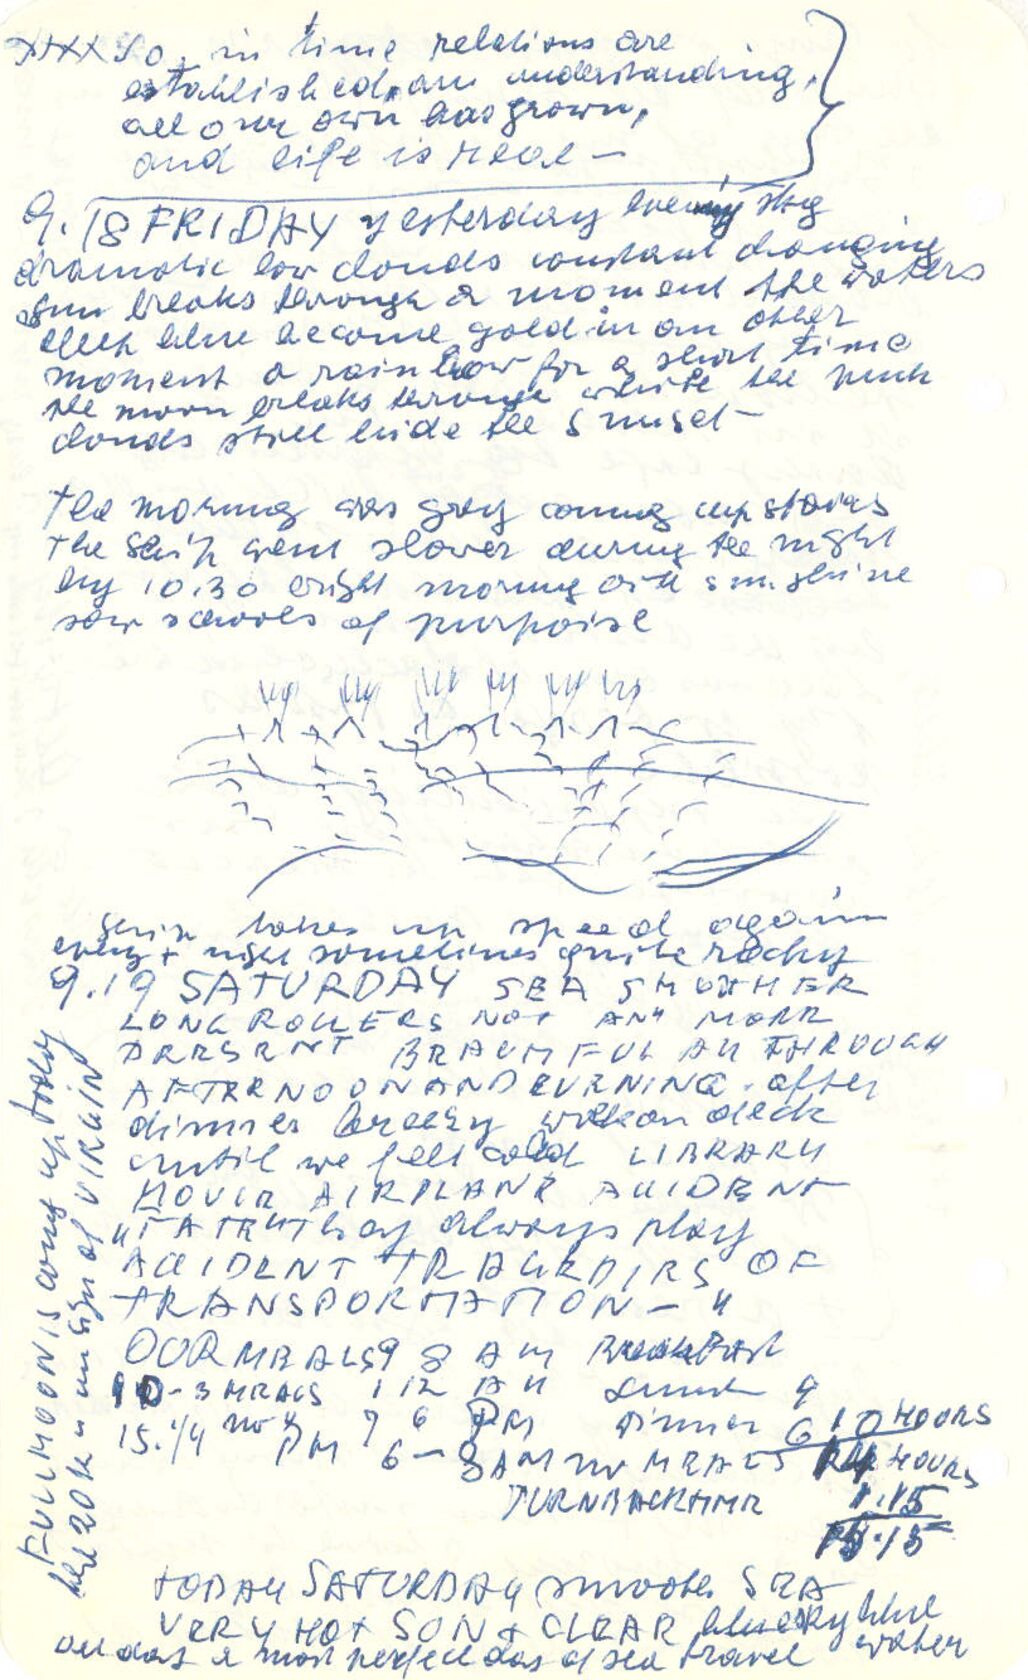 xxxx So, in time relations are
established, an understanding,
all our own has grown,
and life is real —
9.18 FRIDAY yesterday evening sky
dramatic low clouds constant changing
sun breaks through a moment the waters
deep blue become gold in an other
moment a rainbow for a short time
the moon breaks through while the pink
clouds still hide the sunset —
the morning was grey coming up stairs
the ship went slower during the night
by 10.30 bright morning with sunshine
saw schools of purpoise
Ship takes up speed again
evening + night sometimes quite rocky
9.19 SATURDAY SEA SMOOTHER
LONG ROLLERS NOT ANY MORE
PRESENT BEAUTIFUL ALL THROUGH
AFTERNOON AND EVENING. after
dinner breezy walk on deck
until we felt cold LIBRARY
MOVIE AIRPLANE ACCIDENT
"FATE" they always play
ACCIDENT TRAGEDIES OF
TRANSPORMATION — "
OUR MEALS 9 8 AM Breakfast
10 - 3 MEALS 1 12 AM Lunch 4
15.1/4 no 4 7 6 PM Dinner 6 10 HOURS
PM 6 — 8 AM no MEALS 14 HOURS
TURNBACK TIME 1.15
15.15
TODAY SATURDAY smooth SEA
VERY HOT SON + CLEAR blue sky blue
all day a most perfect day of sea travel water
FULL MOON IS coming up today
the 20th in sign of VIRGIN